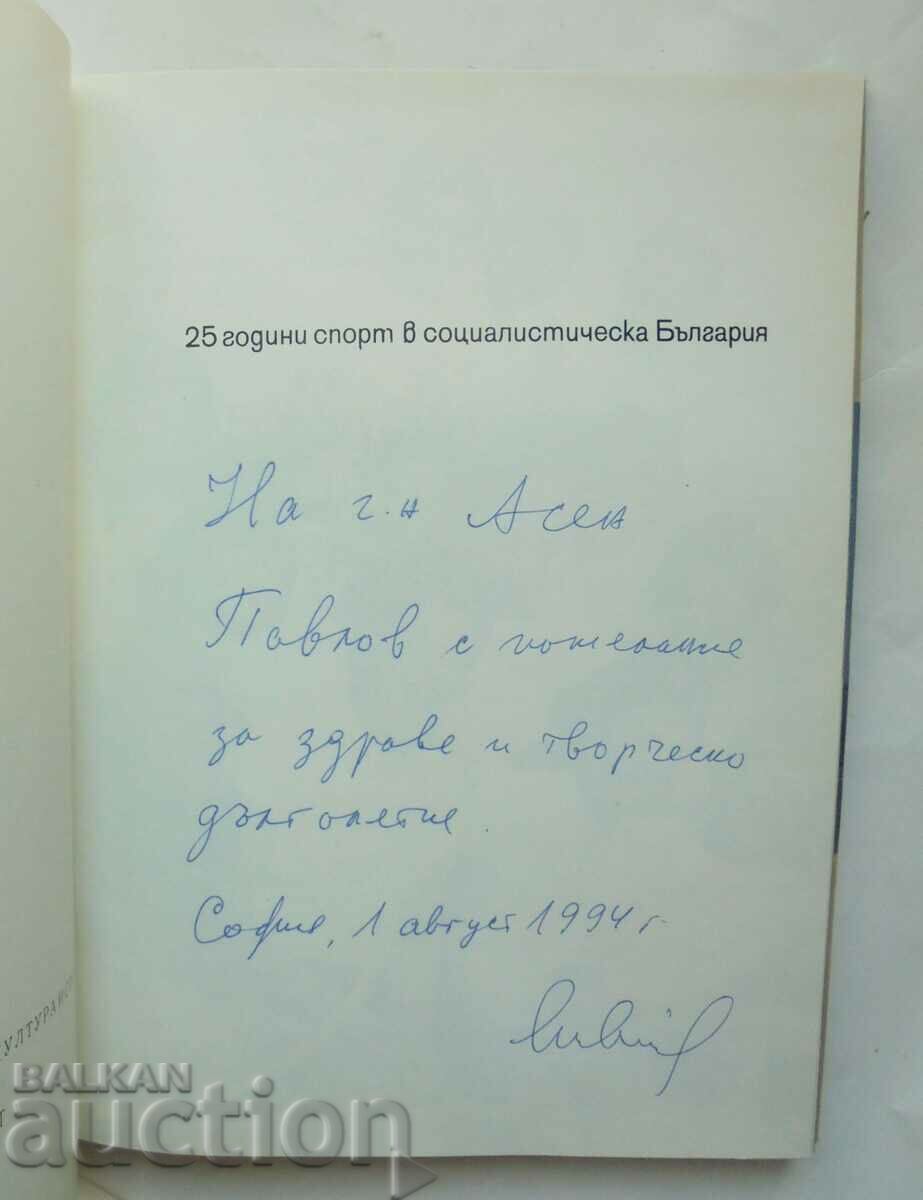 25 години спорт в социалистическа България
На г.н Асен
Павлов с пожелание
за здраве и творческо
дълголетие.
София, 1 август 1994 г.
КУЛТУРА И
BALKAN
auction